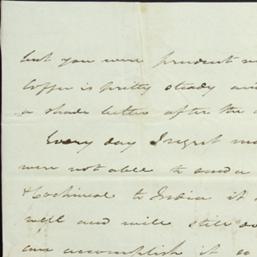 but you were prudent
Coffee is pretty steady
a shade better after the
Every day I regret
were not able to send a
& Cochineal to India it
well and will still do
can accomplish it